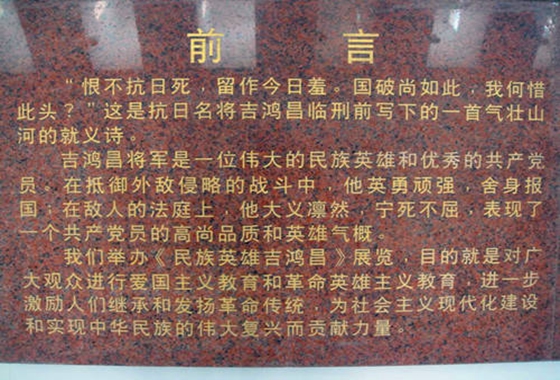 前 言
“恨不抗日死，留作今日羞。国破尚如此，我何惜
此头？”这是抗日名将吉鸿昌临刑前写下的一首气壮山
河的就义诗。
吉鸿昌将军是一位伟大的民族英雄和优秀的共产党
员。在抵御外敌侵略的战斗中，他英勇顽强，舍身报
国；在敌人的法庭上，他大义凛然，宁死不屈，表现了
一个共产党员的高尚品质和英雄气概。
我们举办《民族英雄吉鸿昌》展览，目的就是对广
大观众进行爱国主义教育和革命英雄主义教育，进一步
激励人们继承和发扬革命传统，为社会主义现代化建设
和实现中华民族的伟大复兴而贡献力量。